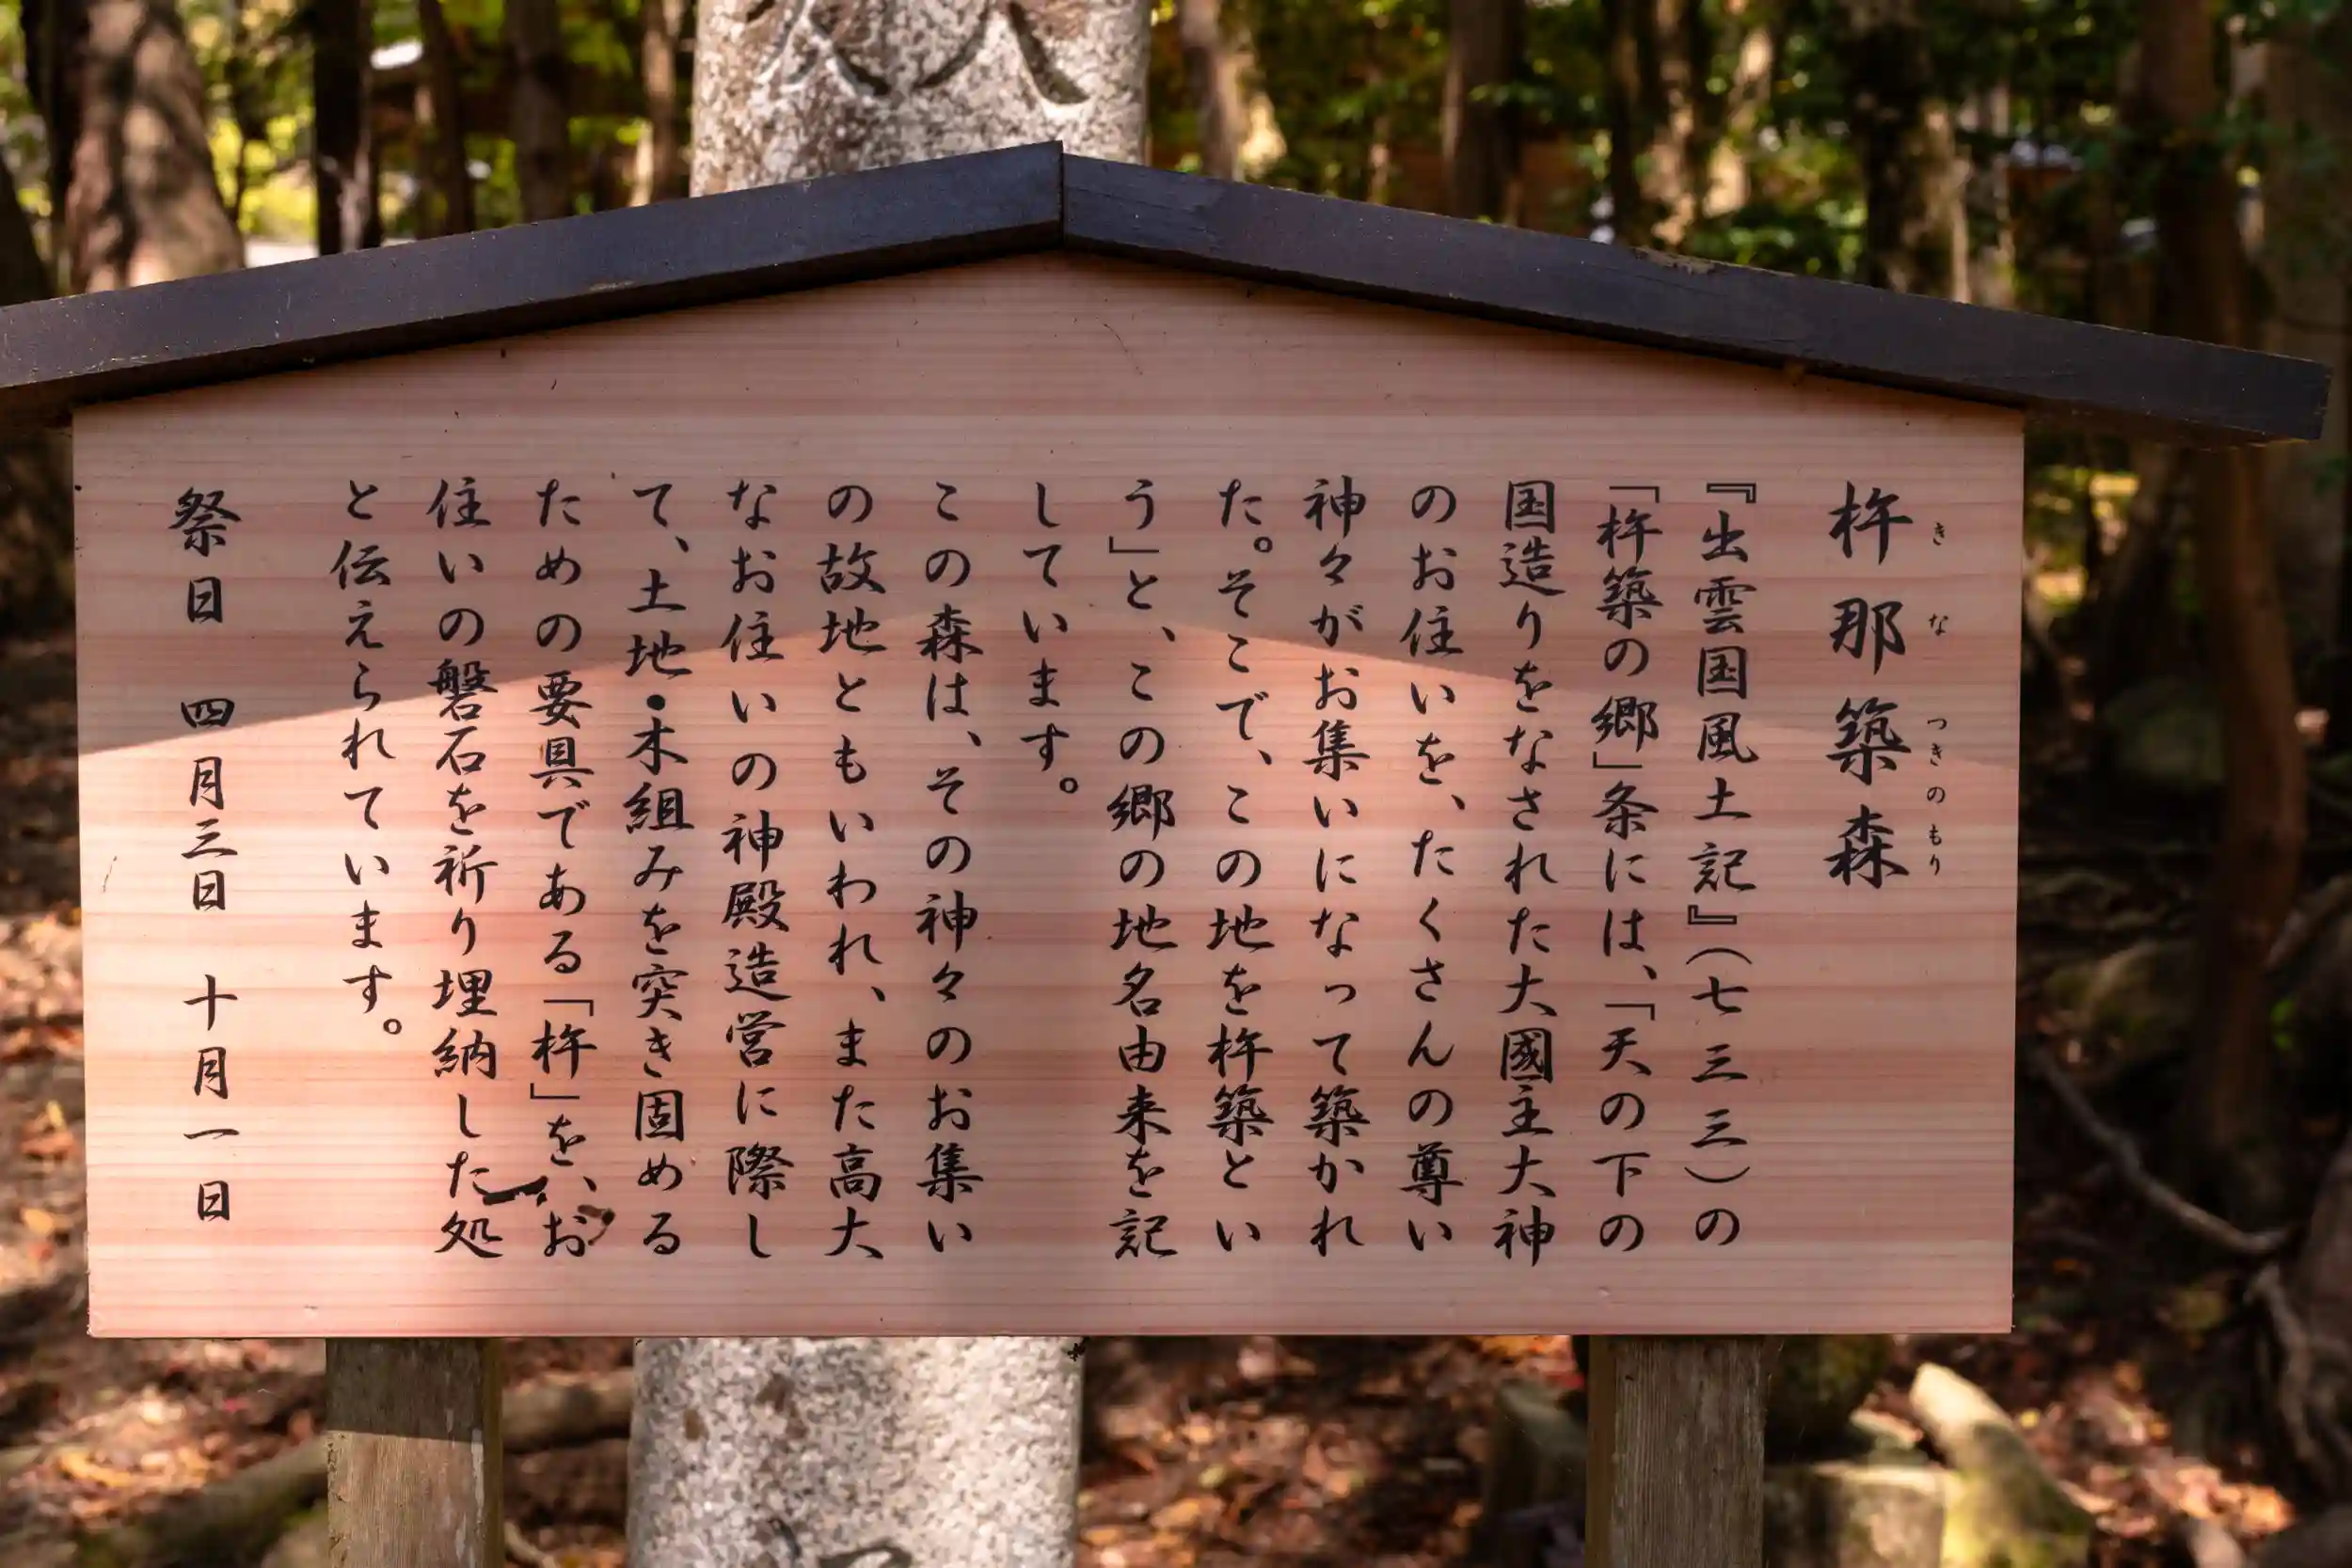 杵那築森
きなつきのもり
『出雲国風土記』(七三三)の
「杵築の郷」条には、「天の下の
国造りをなされた大國主大神
のお住いを、たくさんの尊い
神々がお集いになって築かれ
た。そこで、この地を杵築とい
う」と、この郷の地名由来を記
しています。
この森は、その神々のお集い
の故地ともいわれ、また高大
なお住いの神殿造営に際し
て、土地・木組みを突き固める
ための要具である「杵」を、お
住いの磐石を祈り埋納した処
と伝えられています。
祭日　四月三日　十月一日